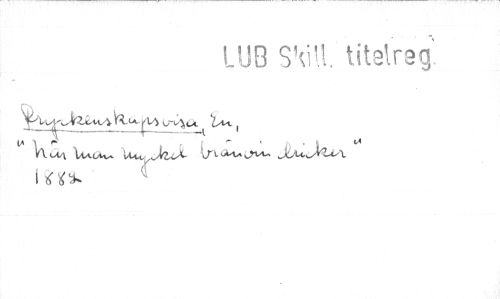 LUB Skill. titelreg.
Dryckenskapsvisa, En,
"När man mycket bränvin dricker"
1882